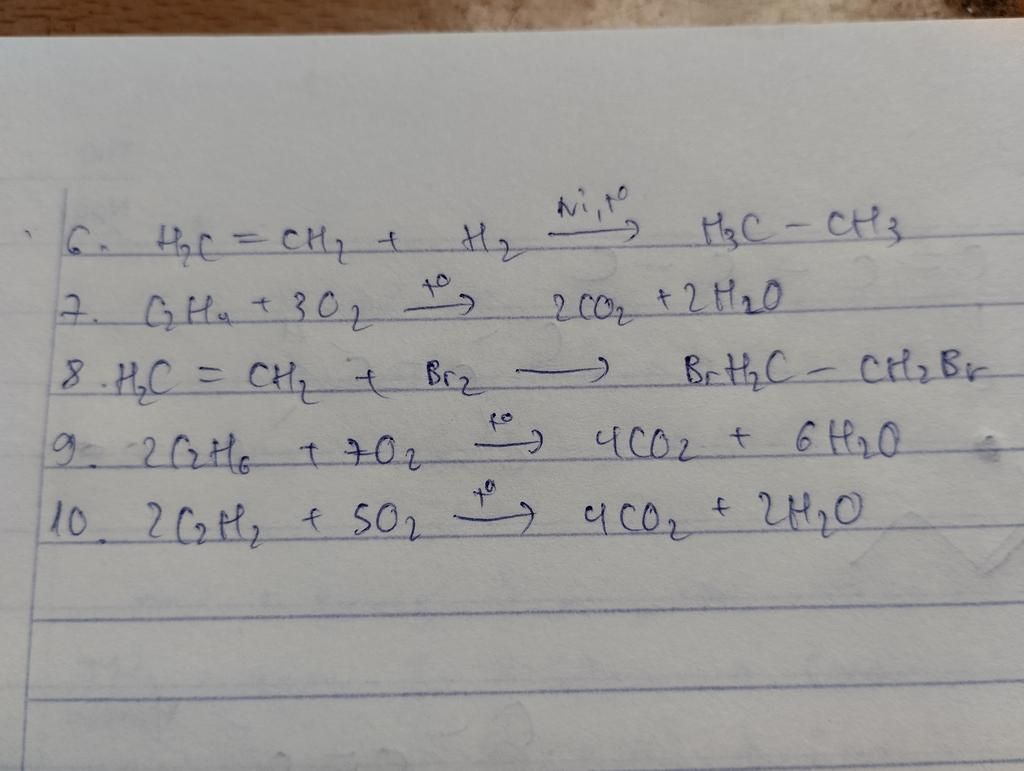 6. H₂C = CH₂ + H₂ —Ni, t°→ H₃C – CH₃
7. C₂H₄ + 3O₂ —t°→ 2CO₂ + 2H₂O
8. H₂C = CH₂ + Br₂ ⟶ BrH₂C – CH₂Br
9. 2C₂H₆ + 7O₂ —t°→ 4CO₂ + 6H₂O
10. 2C₂H₂ + 5O₂ —t°→ 4CO₂ + 2H₂O